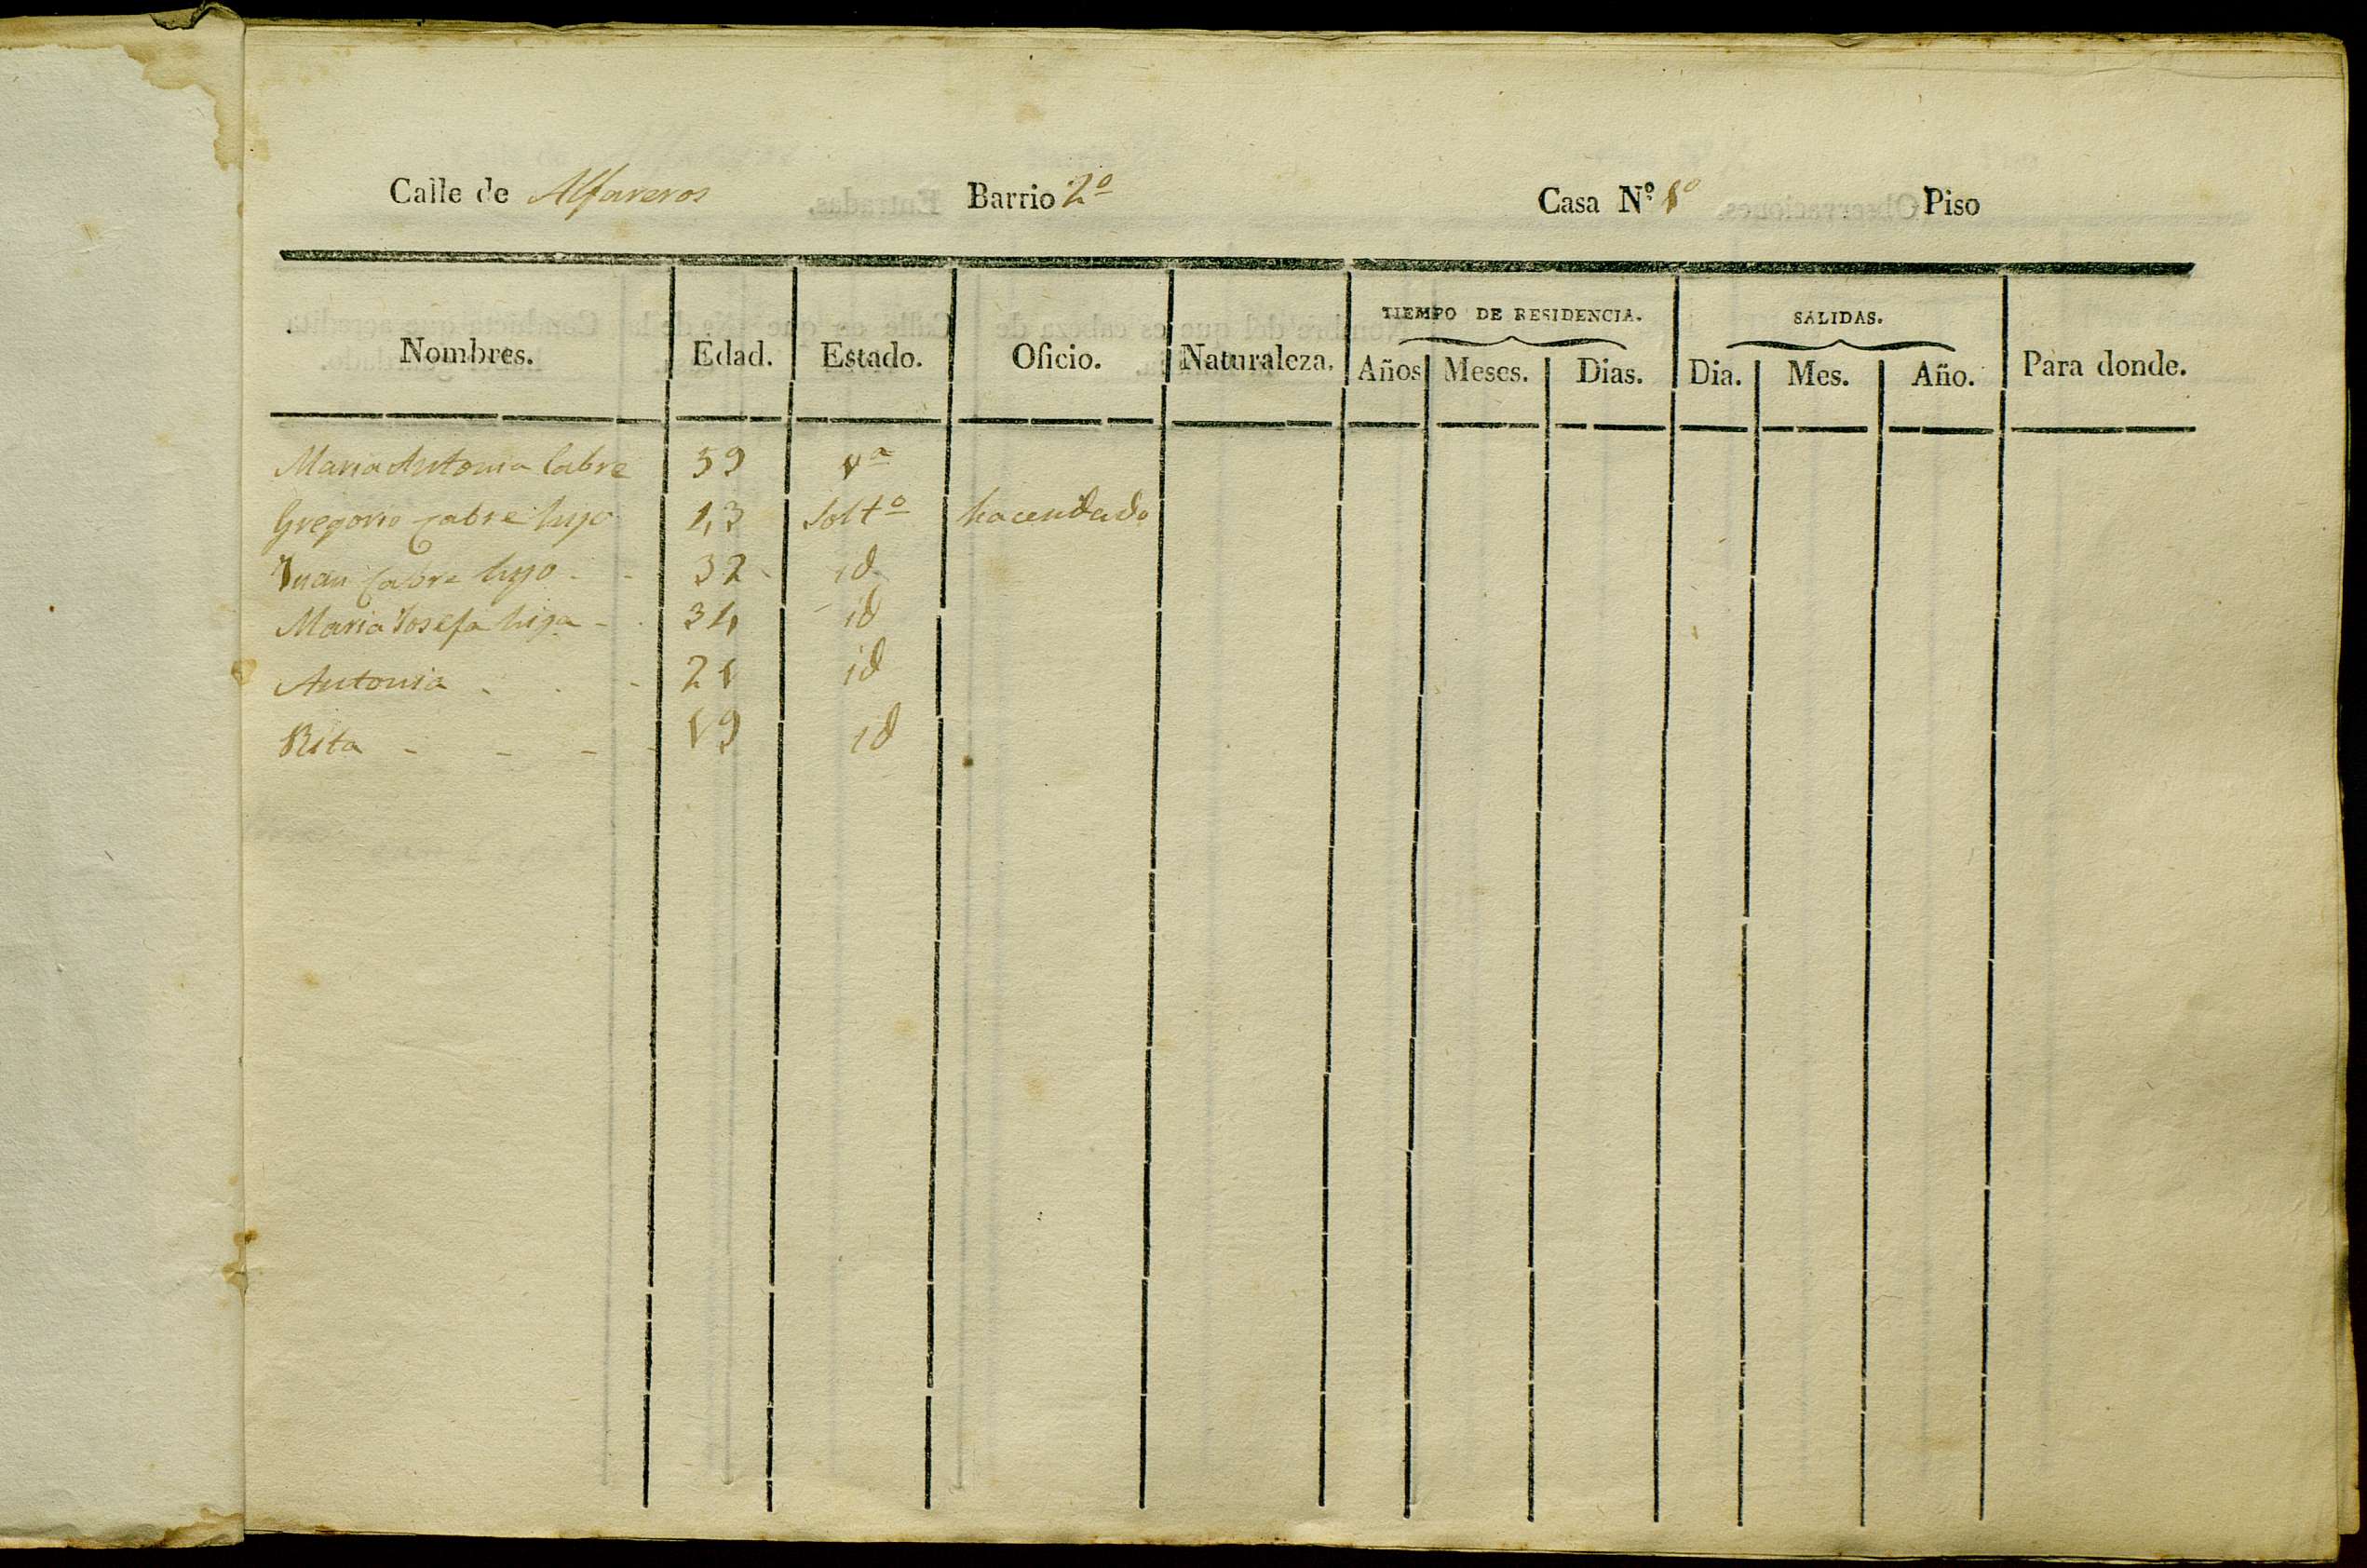 Calle de Alfareros Barrio 2º Casa Nº 1º Piso
TIEMPO DE RESIDENCIA. SALIDAS.
Nombres. Edad. Estado. Oficio. Naturaleza. Años Meses. Dias. Dia. Mes. Año. Para donde.
Maria Antonia Cabre 59 vª
Gregorio Cabre hijo solt.º hacendado
Juan Cabre hijo - - 32 - id
Maria Josefa hija - - 34 id
Antonia - - - 21 id
Rita - - - - 19 id